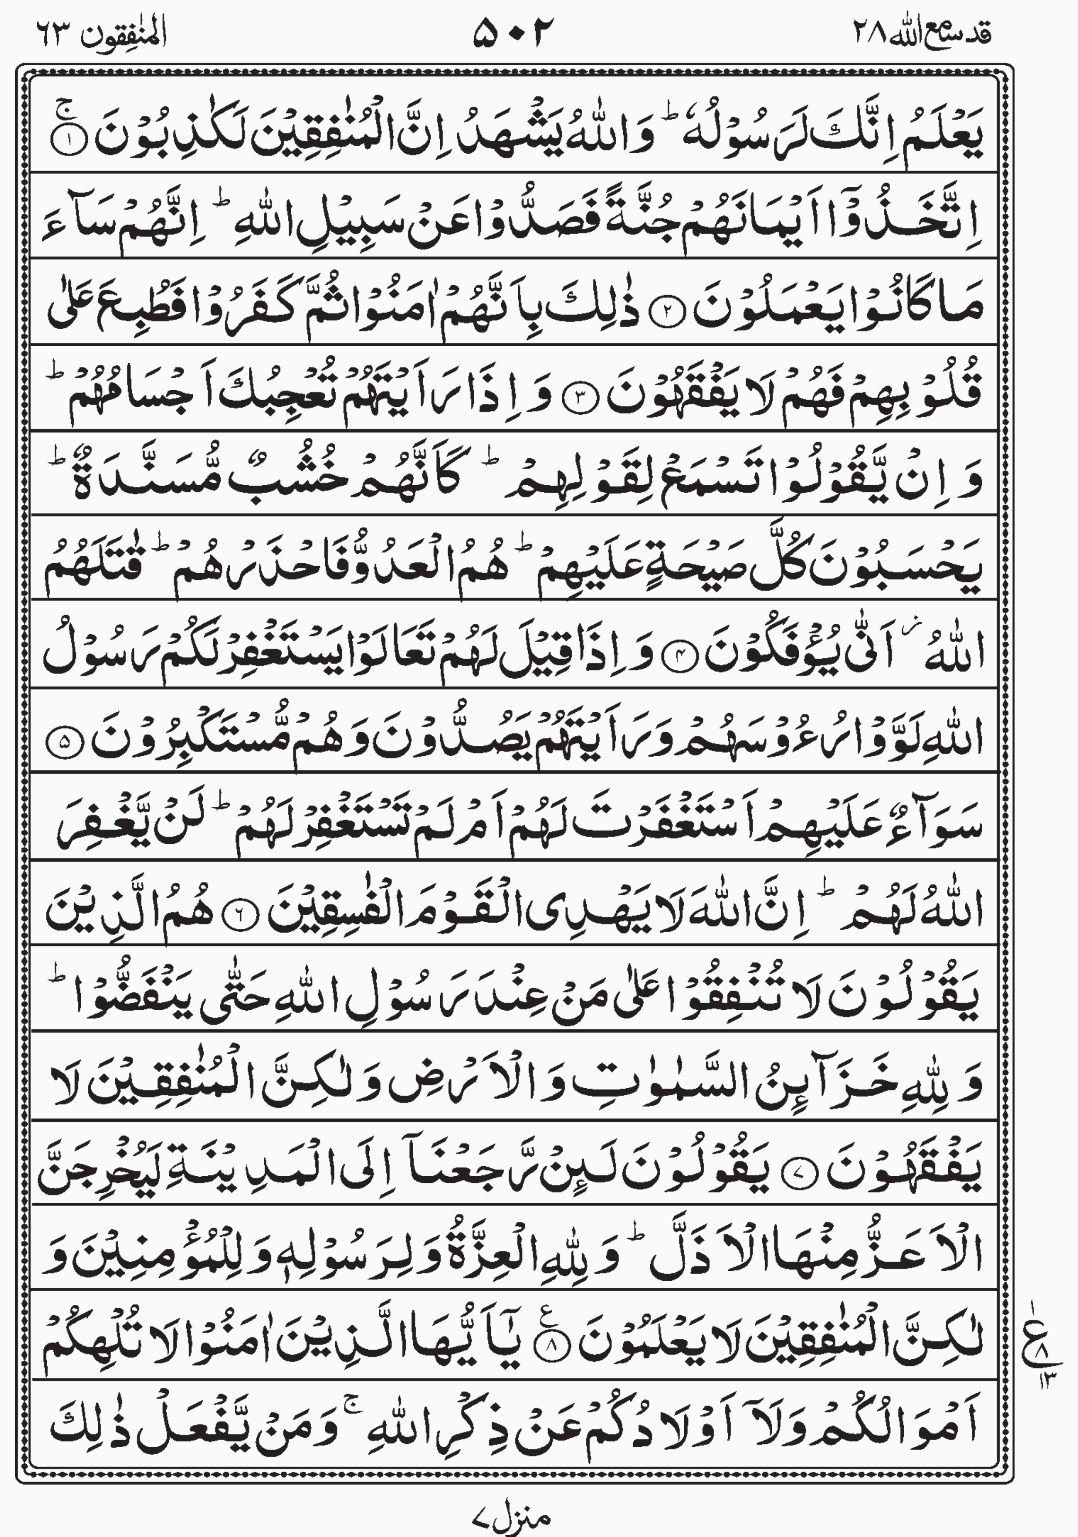 قد سمع الله ٢٨
۵٠٢
المنٰفقون ٦٣
يَعْلَمُ اِنَّكَ لَرَسُوْلُهٗ ؕ وَاللّٰهُ يَشْهَدُ اِنَّ الْمُنٰفِقِيْنَ لَكٰذِبُوْنَ ۚ ﴿۱﴾
اِتَّخَذُوْۤا اَيْمَانَهُمْ جُنَّةً فَصَدُّوْا عَنْ سَبِيْلِ اللّٰهِ ؕ اِنَّهُمْ سَآءَ
مَا كَانُوْا يَعْمَلُوْنَ ﴿۲﴾ ذٰلِكَ بِاَنَّهُمْ اٰمَنُوْا ثُمَّ كَفَرُوْا فَطُبِعَ عَلٰى
قُلُوْبِهِمْ فَهُمْ لَا يَفْقَهُوْنَ ﴿۳﴾ وَ اِذَا رَاَيْتَهُمْ تُعْجِبُكَ اَجْسَامُهُمْ ؕ
وَ اِنْ يَّقُوْلُوْا تَسْمَعْ لِقَوْلِهِمْ ؕ كَاَنَّهُمْ خُشُبٌ مُّسَنَّدَةٌ ؕ
يَحْسَبُوْنَ كُلَّ صَيْحَةٍ عَلَيْهِمْ ؕ هُمُ الْعَدُوُّ فَاحْذَرْهُمْ ؕ قٰتَلَهُمُ
اللّٰهُ ؗ اَنّٰى يُؤْفَكُوْنَ ﴿۴﴾ وَ اِذَا قِيْلَ لَهُمْ تَعَالَوْا يَسْتَغْفِرْ لَكُمْ رَسُوْلُ
اللّٰهِ لَوَّوْا رُءُوْسَهُمْ وَ رَاَيْتَهُمْ يَصُدُّوْنَ وَهُمْ مُّسْتَكْبِرُوْنَ ﴿۵﴾
سَوَآءٌ عَلَيْهِمْ اَسْتَغْفَرْتَ لَهُمْ اَمْ لَمْ تَسْتَغْفِرْ لَهُمْ ؕ لَنْ يَّغْفِرَ
اللّٰهُ لَهُمْ ؕ اِنَّ اللّٰهَ لَا يَهْدِى الْقَوْمَ الْفٰسِقِيْنَ ﴿۶﴾ هُمُ الَّذِيْنَ
يَقُوْلُوْنَ لَا تُنْفِقُوْا عَلٰى مَنْ عِنْدَ رَسُوْلِ اللّٰهِ حَتّٰى يَنْفَضُّوْا ؕ
وَ لِلّٰهِ خَزَآئِنُ السَّمٰوٰتِ وَ الْاَرْضِ وَ لٰكِنَّ الْمُنٰفِقِيْنَ لَا
يَفْقَهُوْنَ ﴿۷﴾ يَقُوْلُوْنَ لَئِنْ رَّجَعْنَاۤ اِلَى الْمَدِيْنَةِ لَيُخْرِجَنَّ
الْاَعَزُّ مِنْهَا الْاَذَلَّ ؕ وَ لِلّٰهِ الْعِزَّةُ وَ لِرَسُوْلِهٖ وَ لِلْمُؤْمِنِيْنَ وَ
لٰكِنَّ الْمُنٰفِقِيْنَ لَا يَعْلَمُوْنَ ﴿۸﴾ ع يٰۤاَيُّهَا الَّذِيْنَ اٰمَنُوْا لَا تُلْهِكُمْ
١ ع ٨ ١٣
اَمْوَالُكُمْ وَلَاۤ اَوْلَادُكُمْ عَنْ ذِكْرِ اللّٰهِ ۚ وَمَنْ يَّفْعَلْ ذٰلِكَ
منزل ٧